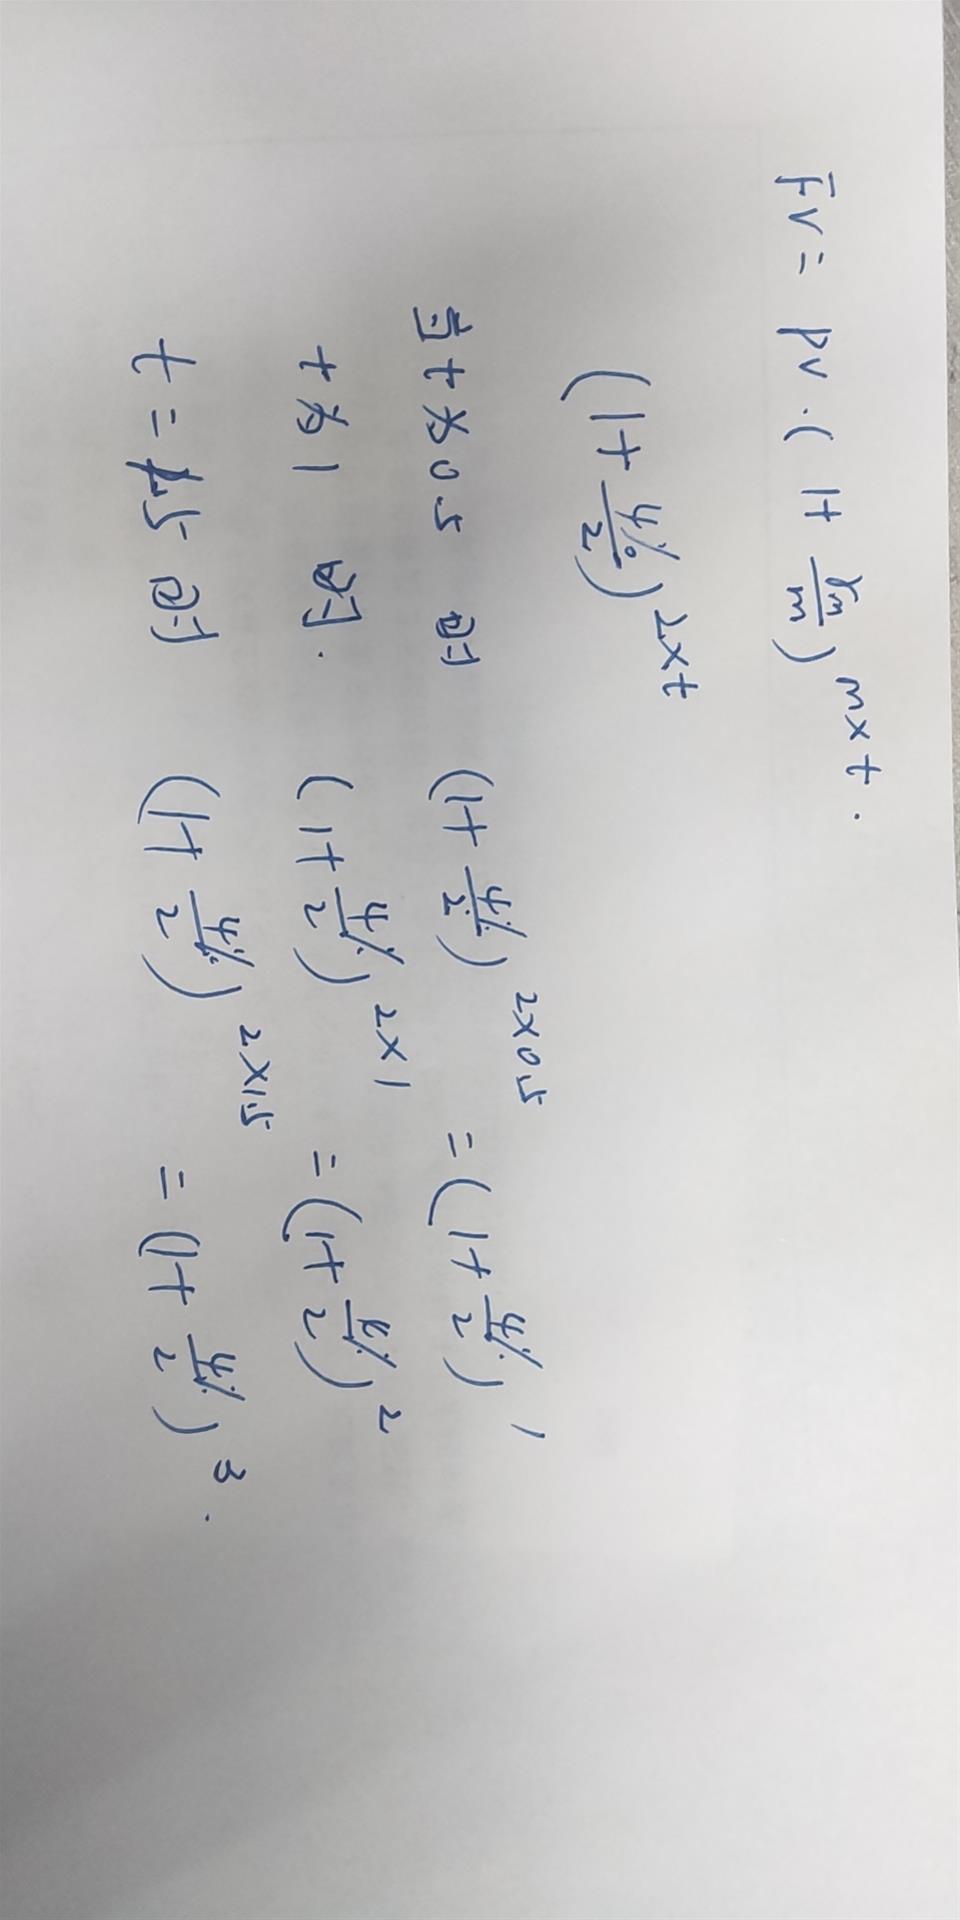 FV = PV · (1+ rm/m)^m×t .
(1+ 4%/2)^2×t
当 t 为 0.5 时 (1+ 4%/2)^2×0.5 = (1+ 4%/2)^1
t 为 1 时. (1+ 4%/2)^2×1 = (1+ 4%/2)^2
t = 1.5 时 (1+ 4%/2)^2×1.5 = (1+ 4%/2)^3 .